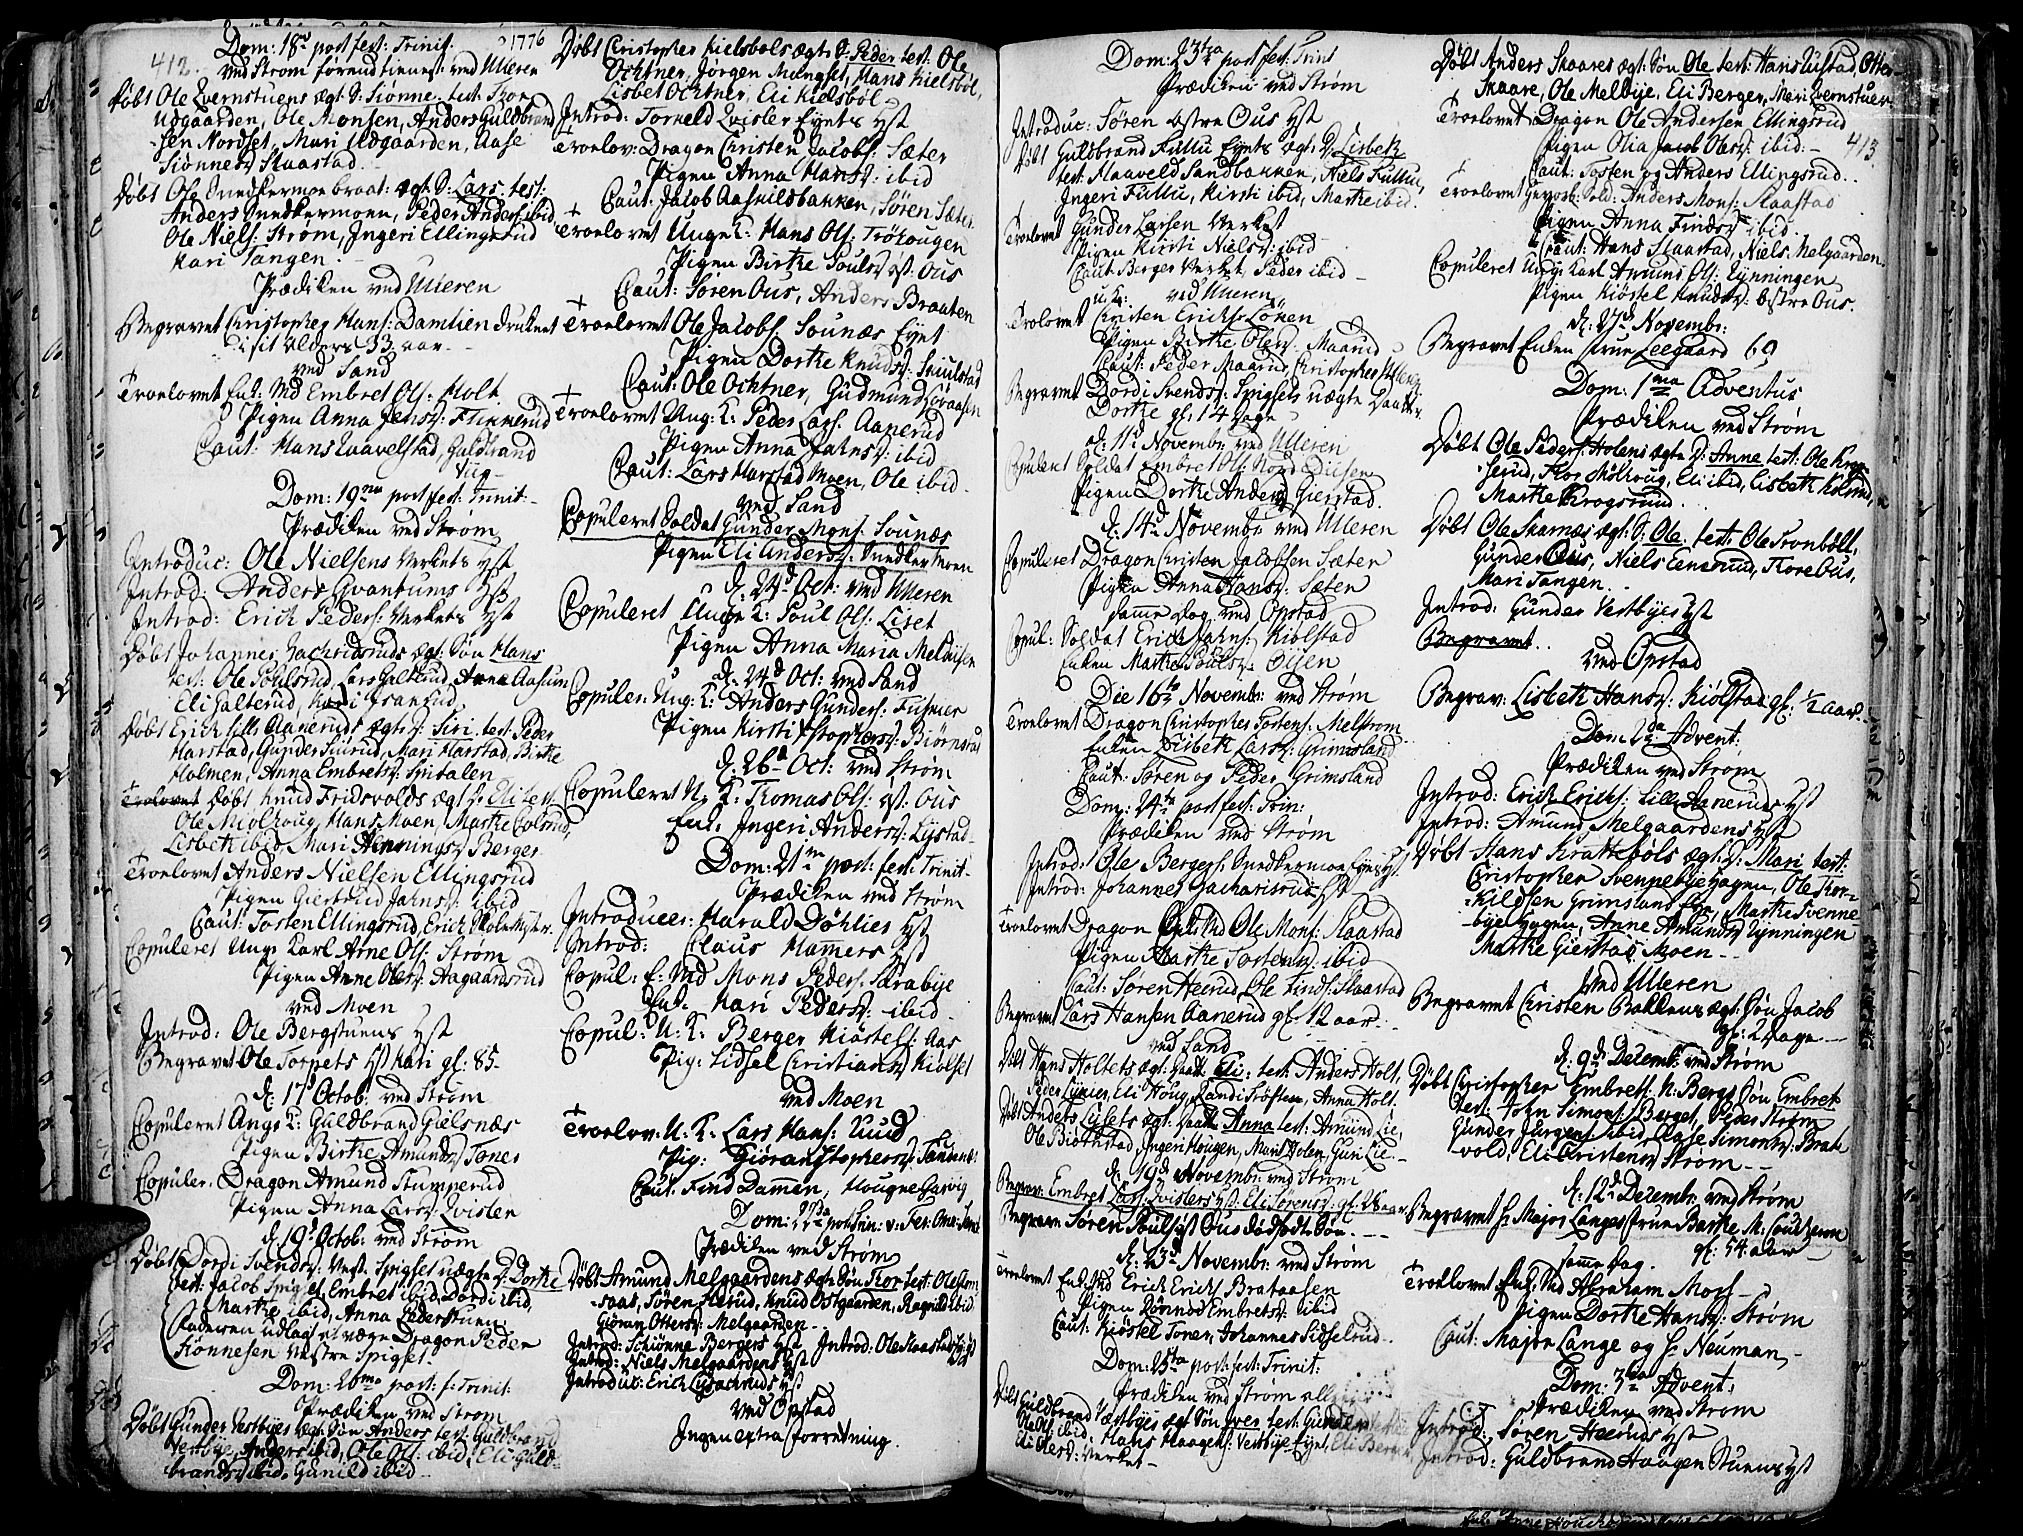 412.
Dom: 18 post fest: Trinit. 1776
ved Strøm førend tienest: ved Ulleren
Døbt Ole Qvernstuens ægt: S: Siønne. test: Thor
Udgaarden, Ole Monsen, Anders Guldbrand
-sen Nordset, Mari Udgaarden, Aase
Siønnes Skaastad
Døbt Ole Snedkermoe braat: ægt: S: Lars. test:
Anders Snedkermoen, Peder Anders: ibid
Ole Niels: Strøm, Ingeri Ellingsrud
Kari Tangen.
Prædiken ved Ulleren
Begravet Christopher Hans: Damlien druknet
i sit Alders 33 aar
ved Sand
Troelovet Enk: Md Embret Ols: Holt
Pigen Anna Jensd: Flikkerud
Caut: Hans Haavelstad, Guldbrand
Dom: 19 post fest: Trinit:
Prædiken ved Strøm
Introduc: Ole Nielsens Verkets Hst
Introd: Anders Qvantums Hst
Introd: Erich Peders: Verkets Hst
Døbt Johannes Zachridsruds ægt: Søn Hans
test: Ole Poulsrud, Lars Galterud, Anna Aasum
Eli Galterud, Kari
Døbt Erich lille Aaneruds ægt: D: Siri. test: Peder
Harstad, Gunder Suirud, Mari Harstad, Birthe
Holmen, Anna Embretsd: Spitalen
Troelovet Døbt Knud Fridsvolds ægt: D: Eli test:
Ole Miølhoug, Hans Moen, Marthe Colsrud,
Lisbeth ibid, Mari Hennings Berger
Troelovet Anders Nielsen Ellingsrud
Pigen Giertrud Jahnsd: ibid
Caut: Tosten Ellingsrud, Erich Skolemester
Copuleret Unge Karl Arne Ols: Strøm
Pigen Anne Olesd: Aagaardsrud
ved Moen
Introd: Ole Bergstuens Hst
Begravet Ole Torpets Hst Kari gl: 85-
d: 17 Octob: ved Strøm
Copuleret Unge K: Guldbrand Gielsnæs
Pigen Birthe Amundsd Toner
Copuler: Dragon Amund Stumperud
Pigen Anna Larsd: Qvislen
d: 19 Octob: ved Strøm
Døbt Dordi Svendsd: Vest: Spigset uægte D: Dorthe
test: Jacob Spigset, Embret ibid, Dordi ibid,
Marthe ibid, Anna Pederstuen.
Faderen udlagt at være Dragon Peder
Siønnesen Vestre Spigset.
Dom: 20 post: f: Trinit:
Prædiken ved Strøm
Døbt Gunder Vestbyes ægt: Søn Anders test: Guldbrand
Vestbye, Anders ibid, Ole Ols: ibid, Eli Guld-
brandsd ibid, Gunild ibid
Døbt Christopher Kielsbøls ægt: S: Peder test: Ole
Ochtner, Jørgen Mængset, Hans Kielsbøl,
Lisbet Ochtner, Eli Kielsbøl
Introd: Torkeld Qvisler Eyets Hst
Troelov: Dragon Christen Jacobs: Sæter
Pigen Anna Hansd: ibid
Caut: Jacob Aaskildbakken, Søren Sæter
Troelovet Unge K: Hans Ols: Trøhougen
Pigen Birthe Poulsd: øst: Ous
Caut: Søren Ous, Anders Braaten
Troelovet Ole Jacobs: Sounæs Eyet
Pigen Dorthe Knudsd: Smulstad
Caut: Ole Ochtner, Gudmund Goraasen
Troelovet Ung: K: Peder Lars: Aanerud
Pigen Anna Jahnsd: ibid
Caut: Lars Harstad Moen, Ole ibid
ved Sand
Copuleret Soldat Gunder Mons: Sounæs
Pigen Eli Andersd: Snedkermoen
d: 24 Oct: ved Ulleren
Copuleret Unge K: Poul Ols: Liset
Pigen Anna Maria Melnisen
d: 24 Oct: ved Sand
Copuler: Ung: K: Anders Gunders: Fusker
Pigen Kirsti Xstophersd: Biørnerud
d: 26 Oct: ved Strøm
Copuleret U: K: Thomas Ols: øst: Ous
Enk: Ingeri Andersd: Lystad
Dom: 21 post: fest: Trinit-
Prædiken ved Strøm
Introducer: Harald Døhlies Hst
Introd: Claus Hamers Hst
Copul: E: Md Mons Peders: Skrabye
Enk: Kari Pedersd: ibid
Copul: U: K: Berger Kiøstels: Aas
Pig: Sidsel Christiansd Kiølset
ved Moen
Troelov: U: K: Lars Hans: Ruud
Pig: Giøran Xstophersd:
Caut: Find Dammen, Mougne Garvig
Dom: 22 post Trin: v: Fer: Om: Sand
Prædiken ved Strøm
Døbt Amund Melgaardens ægt: Søn Thor test: Ole Kom-
saas, Søren Herud, Knud Ostgaarden, Ragnild ibid
Giøran Ottersd: Melgaarden
Introd: Schiønne Bergers Hst Introd: Ole Skaastad Hst
Introd: Niels Melgaardens Hst
Introduc: Erich Lysackruds Hst
ved Opstad
Ingen extra forretning.
Dom: 23 post fest: Trinit
Prædiken ved Strøm
Introduc: Søren østre Ous Hst
Døbt Guldbrand Fullu Eyets ægt: D: Lisbeth
test: Haaveld Sandbakken, Niels Fullu,
Ingeri Fullu, Kirsti ibid, Marthe ibid.
Troelovet Gunder Larsen Verket
Pigen Kirsti Nielsd: ibid
Caut: Berger Verket, Peder ibid
ved Ulleren
Troelovet Christen Erichs: Løken
Pigen Birthe Olesd: Maarud
Caut: Peder Maarud, Christopher Ulleren
Begravet Dordi Svendsd: Spigsets uægte Daatter
Dorthe gl. 14 Dage
d: 11 Novembr: ved Ulleren
Copuleret Soldat Embret Ols: Nord Diisen
Pigen Dorthe Andersd Gierstad.
d: 14 Novembr: ved Ulleren
Copuleret Dragon Christen Jacobsen Sæter
Pigen Anna Hansd: Sæter
samme Dag ved Opstad
Copul: Soldat Erich Jahns: Kiølstad
Enken Marthe Poulsd: Øijen
Die 16 Novembr: ved Strøm
Troelovet Dragon Christopher Tostens: Melstrøm
Enken Lisbeth Larsd: Grimsland
Caut: Søren og Peder Grimsland
Dom: 24 post fest: Trin:
Prædiken ved Strøm
Introd: Ole Bergers: Snedkermoe Eyes Hst
Introd: Johannes Zacharisruds Hst
Troelovet Dragon Enk: Md Ole Mons: Skaastad
Pigen Marthe Tostensd: ibid
Caut: Søren Herud, Ole Finds: Skaastad
Begravet Lars Hansen Aanerud gl: 12 aar
ved Sand
Døbt Hans Holtets ægt: Daatt: Eli: test: Anders Holt,
Peder Lynier, Eli Houg, Randi Trøften, Anna Holt
Døbt Anders Lysets ægt: Daatt: Anna test: Amund Lie,
Ole Biøthstad, Ingeri Hougen, Marit Holen, Guri Lie
d: 19 Novembr: ved Strøm
Begrav: Embret Lars: Qvislers Hst: Eli Sørensd: gl: 28 aar
Begraven Søren Pouls: øst Ous dødfødt Søn.
d: 23 Novembr: ved Strøm
Troelovet Enk: Md Erich Erichs Brataasen
Pigen Rønnou Embretsd: ibid
Caut: Kiøstel Toner, Johannes Sidselrud
Dom: 25 post: fest: Trinit:
Prædiken ved Strøm
Døbt Guldbrand Vestbyes ægt: Søn Iver test: Gunder
Ole Ols: ibid: Hans Haagens: Vestbye Eyet, Eli
Eli Olesd: Verket
Døbt Anders Skaares ægt: Søn Ole test: Hans Lustad, Otter
Skaare, Ole Melbye, Eli Berger, Mari Qvernstuen
Troelovet Dragon Ole Andersen Ellingsrud
Pigen Olia Jacob Olesd: ibid:
413.
Caut: Tosten og Anders Ellingsrud.
Troelovet Sold: Anders Mons: Skaastad
Pigen Anna Findsd ibid.
Caut: Hans Skaastad, Niels Melgaarden.
Copuleret Unge Karl Amund Ols: Lynningen
Pigen Kiøstel Knudsd: østre Ous.
d: 27 Novembr:
Begravet Enken Frue Leegaard 69
Dom: 1 Adventus
Prædiken ved Strøm
Døbt Ole Peders: Holens ægte D: Anne test: Ole Krog-
serud, Thor Miølhoug, Eli ibid, Lisbeth Kolsrud,
Marthe Krogsrud.
Døbt Ole Skarnæs ægt: S: Ole. test: Ole Tronbøll,
Gunder Ous, Niels Eensrud, Thore Ous,
Mari Tangen
Introd: Gunder Vestbyes Hst
Begravet..
ved Opstad
Begrav: Lisbeth Hansd: Kiølstad gl: 1/2 aar
Dom: 2 Advent:
Prædiken ved Strøm
Introd: Erich Erichs: Lille Aaneruds Hst
Introd: Amund Melgaardens Hst
Døbt Hans Krattebøls ægt: D: Mari test:
Christopher Svennebye Hagen, Ole Thor-
kildsen Grimsland Eye, Marthe Svenne-
bye Hagen, Anne Amundsd Lynningen
Marthe Gierstad Moen
ved Ulleren
Begravet Christen Bakkens ægt: Søn Jacob
gl: 2 Dage
d: 9 Decemb: ved Strøm
Døbt Christopher Embrets: N: Bergs Søn Embret
test: John Simons: Berget, Peder Strøm
Gunder Jørgens: ibid, Aase Simonsd: Brat
vold, Eli Christensd: Strøm
d: 12 Decembr: ved Strøm
Begravet Hr Major Langes Frue Barthe M: Caulzeum
gl: 54 aar
samme Dag.
Troelovet Enk: Md Abraham Mos
Pigen Dorthe Hansd: Strøm
Caut: Major Lange og Hr Neuman
Dom: 3 Advent:
Prædiken ved Strøm
Introd: Søren Heeruds Hst
Introd: Guldbrand Haagenstuens Hst